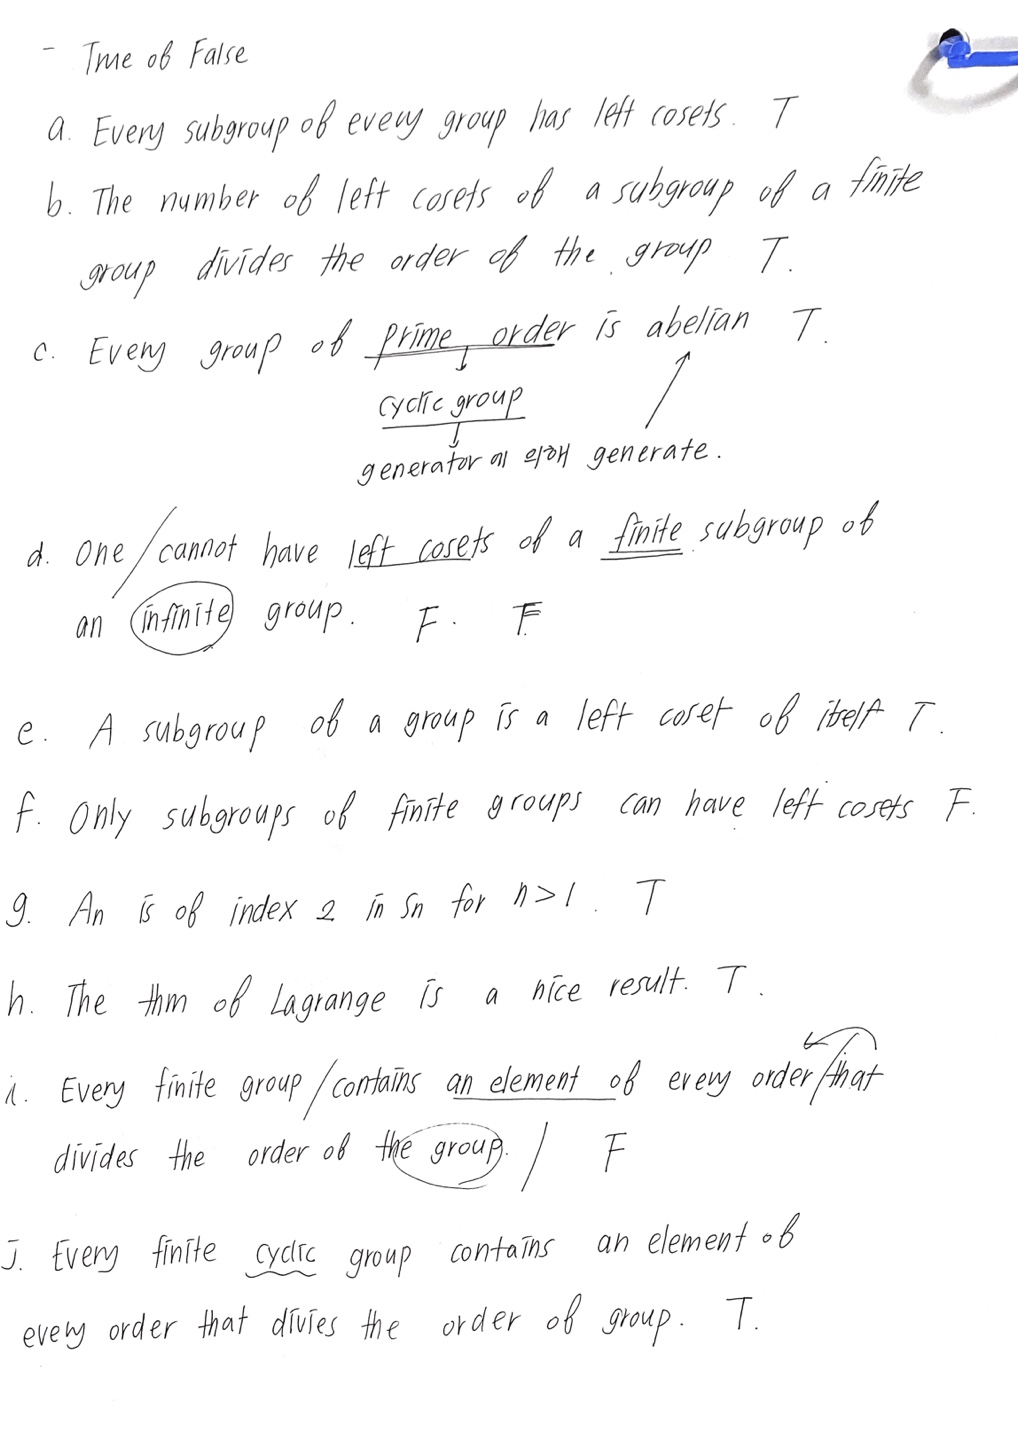 - True of False
a. Every subgroup of every group has left cosets. T
b. The number of left cosets of a subgroup of a finite
group divides the order of the group T.
c. Every group of prime order is abelian T.
cyclic group
generator에 의해 generate.
d. One / cannot have left cosets of a finite subgroup of
an infinite group. F. F.
e. A subgroup of a group is a left coset of itself T.
f. Only subgroups of finite groups can have left cosets F.
g. An is of index 2 in Sn for n>1. T
h. The thm of Lagrange is a nice result. T.
i. Every finite group / contains an element of every order / that
divides the order of the group. / F
j. Every finite cyclic group contains an element of
every order that divies the order of group. T.